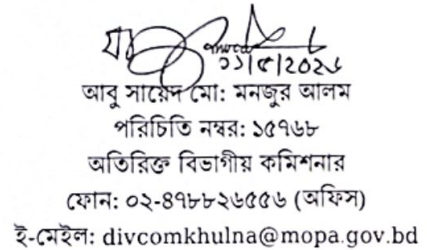 আবু সায়েদ মো: মনজুর আলম
পরিচিতি নম্বর: ১৫৭৬৮
অতিরিক্ত বিভাগীয় কমিশনার
ফোন: ০২-৪৭৮৮২৬৫৫৬ (অফিস)
ই-মেইল: divcomkhulna@mopa.gov.bd